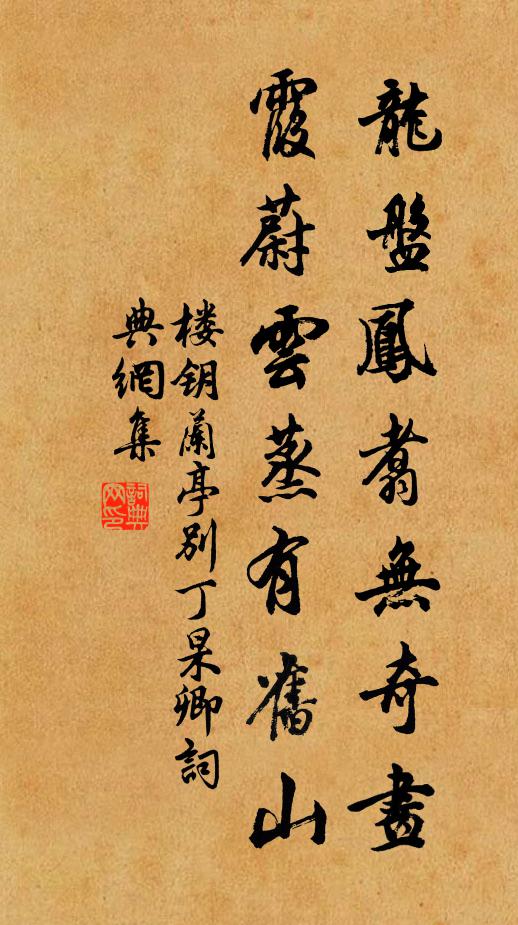 龍盤鳳翥無奇畫
霞蔚雲蒸有舊山
楼钥蘭亭别丁杲卿詞
典網集
詞典
网印